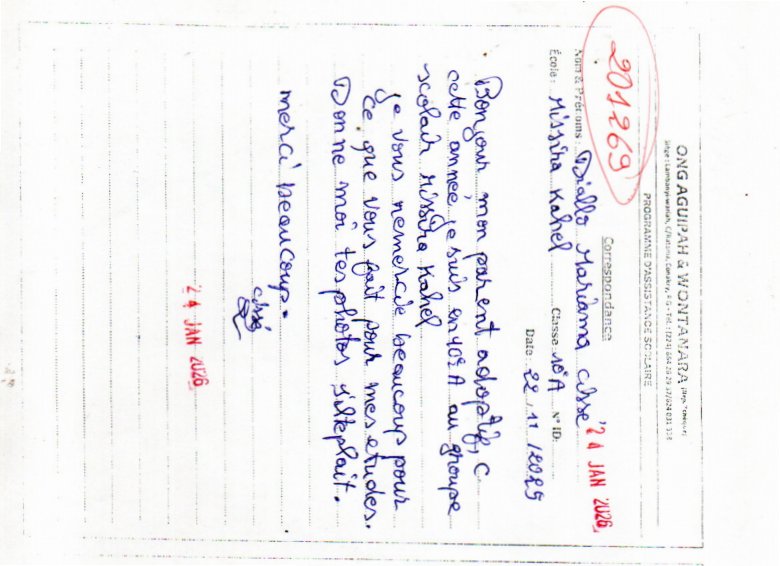 ONG AGUIPAH & WONTANARA
PROGRAMME D'ASSISTANCE SCOLAIRE
201269
Correspondance
'24 JAN 2026
Nom & Prénoms : Diallo Mariama cisse
École : Missira Kahel Classe : 10e A N° ID:
Date : 22 / 11 / 2025
Bonjour mon parent adoptif, c
cette année je suis en 10e A au groupe
scolair Missira Kahel
je vous remercie beaucoup pour
ce que vous fait pour mes etudes.
Donne moi tes photos s'ilteplait.
merci beaucoup.
cissé
'24 JAN 2026